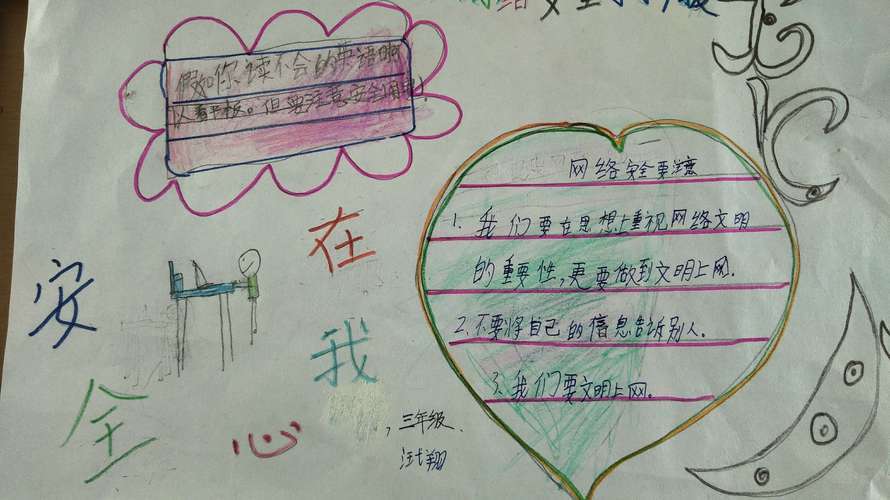 网络安全手抄报
假如你读不会的英语
以看平板。但要注意安全
网络安全要注意
1. 我们要在思想上重视网络文明
的重要性,更要做到文明上网.
2.不要将自己的信息告诉别人.
3.我们要文明上网。
安
全
在
我
心
三年级